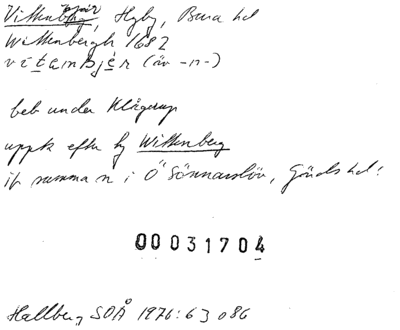 Vittenberg, Hyby, Bara hd
Wittenbergh 1682
vìtəmbjèr (äv -n-)
beb under Klågerup
uppk efter ty Wittenberg
jfr samma n i Ö Sönnarslöv, Gärds hd!
00031704
Hallberg SOÅ 1976: 63 o 86